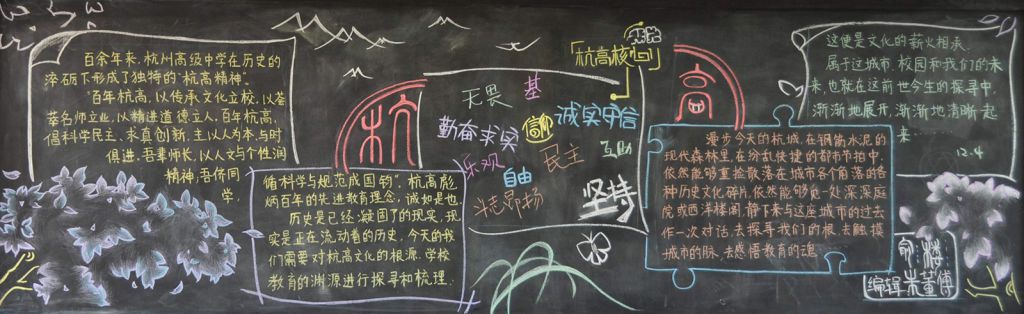 百余年来,杭州高级中学在历史的
淬砺下形成了独特的"杭高精神"。
"百年杭高,以传承文化立校,以荟
萃名师立业,以精进道德立人,百年杭高,
倡科学民主、求真创新,主以人为本,与时
俱进,吾辈师长,以人文与个性润
精神,吾侪同
学,
循科学与规范成国钧"。杭高彪
炳百年的先进教育理念,诚如是也
历史是已经凝固了的现实,现
实是正在流动着的历史,今天的我
们需要对杭高文化的根源、学校
教育的渊源进行探寻和梳理.
杭
无畏
基
勤奋求实
诚实守信
乐观
民主
互助
自由
斗志昂扬
坚持
「杭高核
高
漫步今天的杭城,在钢筋水泥的
现代森林里,在纷乱快捷的都市节拍中,
依然能够重拾散落在城市各个角落的各
种历史文化碎片,依然能够觅一处深深庭
院或西洋楼阁,静下来与这座城市的过去
作一次对话,去探寻我们的根,去触摸
城市的脉,去感悟教育的魂
这便是文化的薪火相承.
属于这城市、校园和我们的未
来,也就在这前世今生的探寻中,
渐渐地展开,渐渐地清晰起
来
12.4
编辑 朱董傅